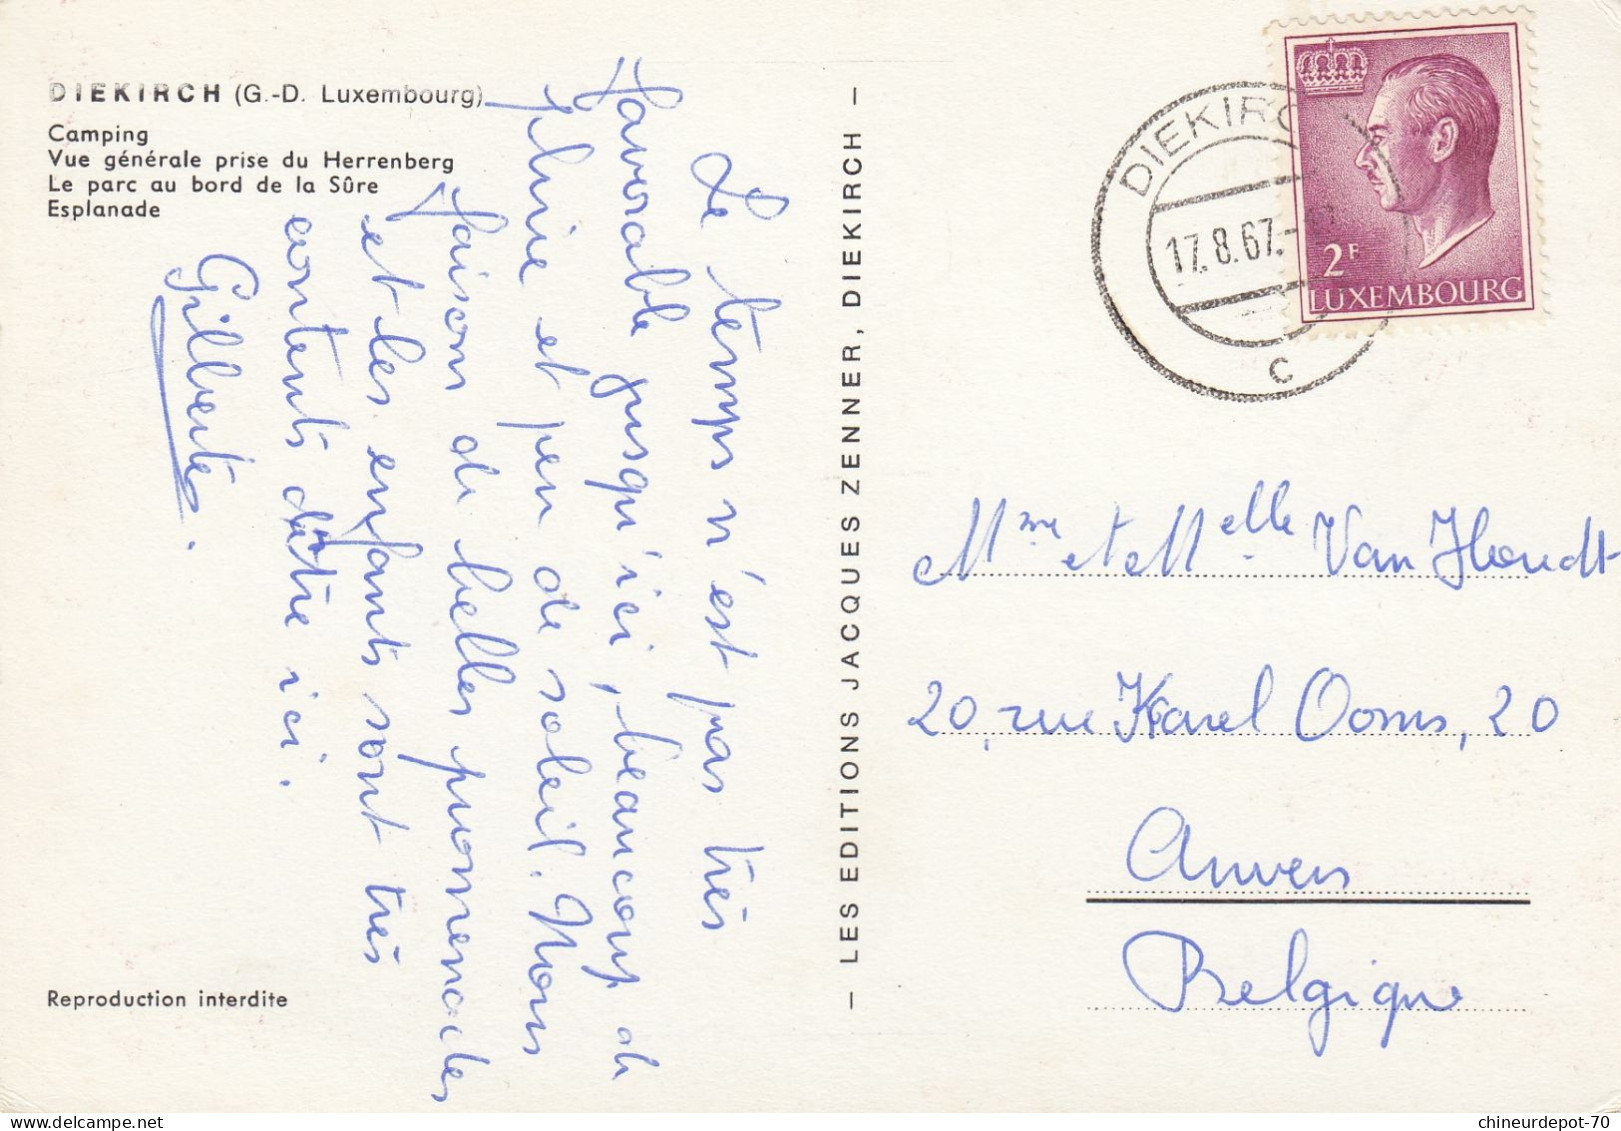 DIEKIRCH (G.-D. Luxembourg)
Camping
Vue générale prise du Herrenberg
Le parc au bord de la Sûre
Esplanade
Le temps n'est pas très
favorable jusqu'ici, beaucoup de
pluie et peu de soleil. Nous
faisons de belles promenades
et les enfants sont très
contents d'être ici.
Gilberte.
Reproduction interdite
— LES EDITIONS JACQUES ZENNER, DIEKIRCH —
DIEKIRCH
17.8.67.-
C
2F
LUXEMBOURG
Mme et Melle Van Houdt
20, rue Karel Ooms, 20
Anvers
Belgique
chineurdepot-70